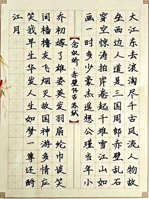 大江东去浪淘尽千古风流人物故
垒西边人道是三国周郎赤壁乱石
穿空惊涛拍岸卷起千堆雪江山如
画一时多少豪杰遥想公瑾当年小
念奴娇·赤壁怀古 苏轼
乔初嫁了雄姿英发羽扇纶巾谈笑
间樯橹灰飞烟灭故国神游多情应
笑我早生华发人生如梦一尊还酹
江月